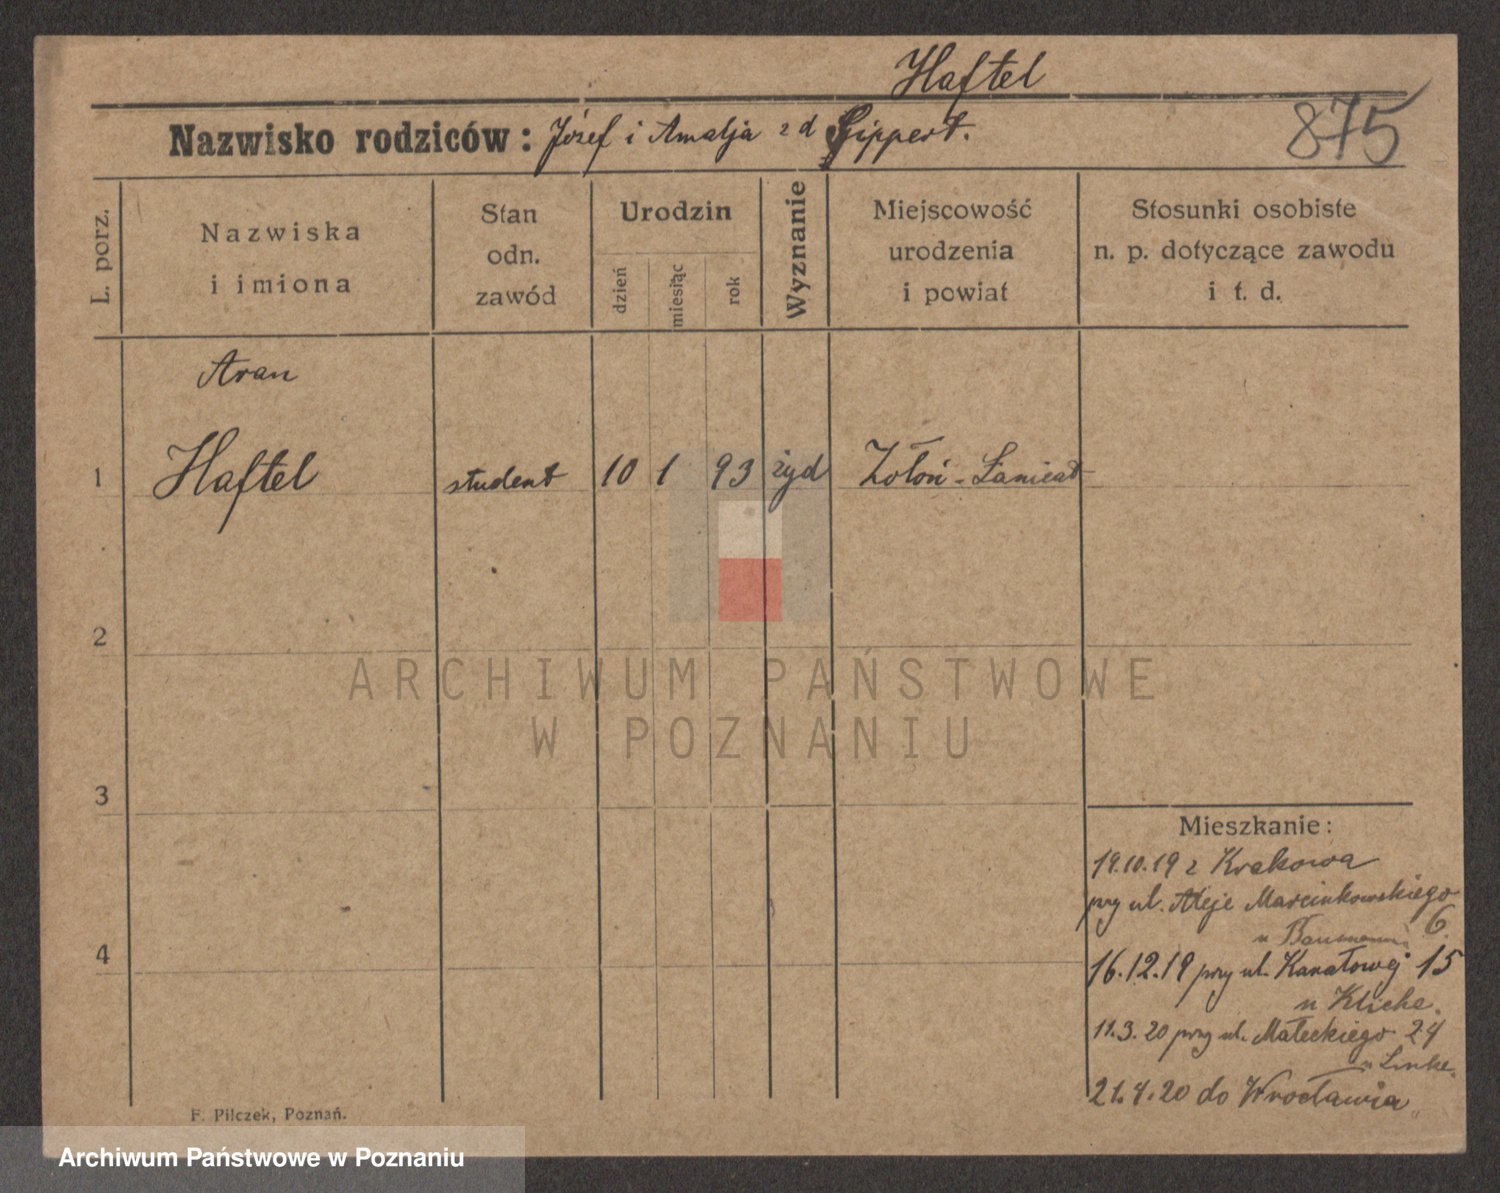 Haftel
875
Nazwisko rodziców: Józef i Amalja z d Gippert.
L. porz.
Nazwiska i imiona
Stan odn. zawód
Urodzin
dzień
miesiąc
rok
Wyznanie
Miejscowość urodzenia i powiat
Stosunki osobiste n. p. dotyczące zawodu i t. d.
Aran
1 Haftel student 10 1 93 żyd Zołoń - Łanicat
2
3
4
ARCHIWUM PAŃSTWOWE
W POZNANIU
Mieszkanie:
19.10.19 z Krakowa
przy ul. Aleje Marcinkowskiego
6.
u Baumann
16.12.19 przy ul. Kanałowej 15
u Klicke.
11.3.20 przy ul. Małeckiego 24
u Linke.
21.4.20 do Wrocławia
F. Pilczek, Poznań.
Archiwum Państwowe w Poznaniu